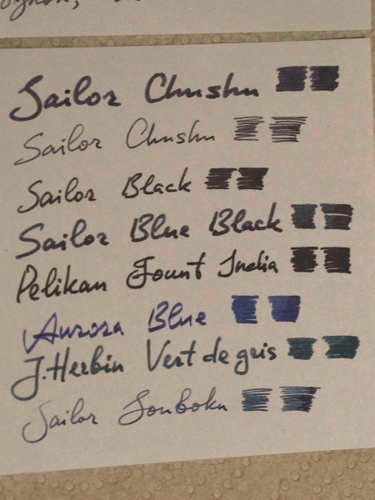 Sailor Chushu
Sailor Chushu
Sailor Black
Sailor Blue Black
Pelikan Fount India
Aurora Blue
J.Herbin Vert de gris
Sailor Souboku